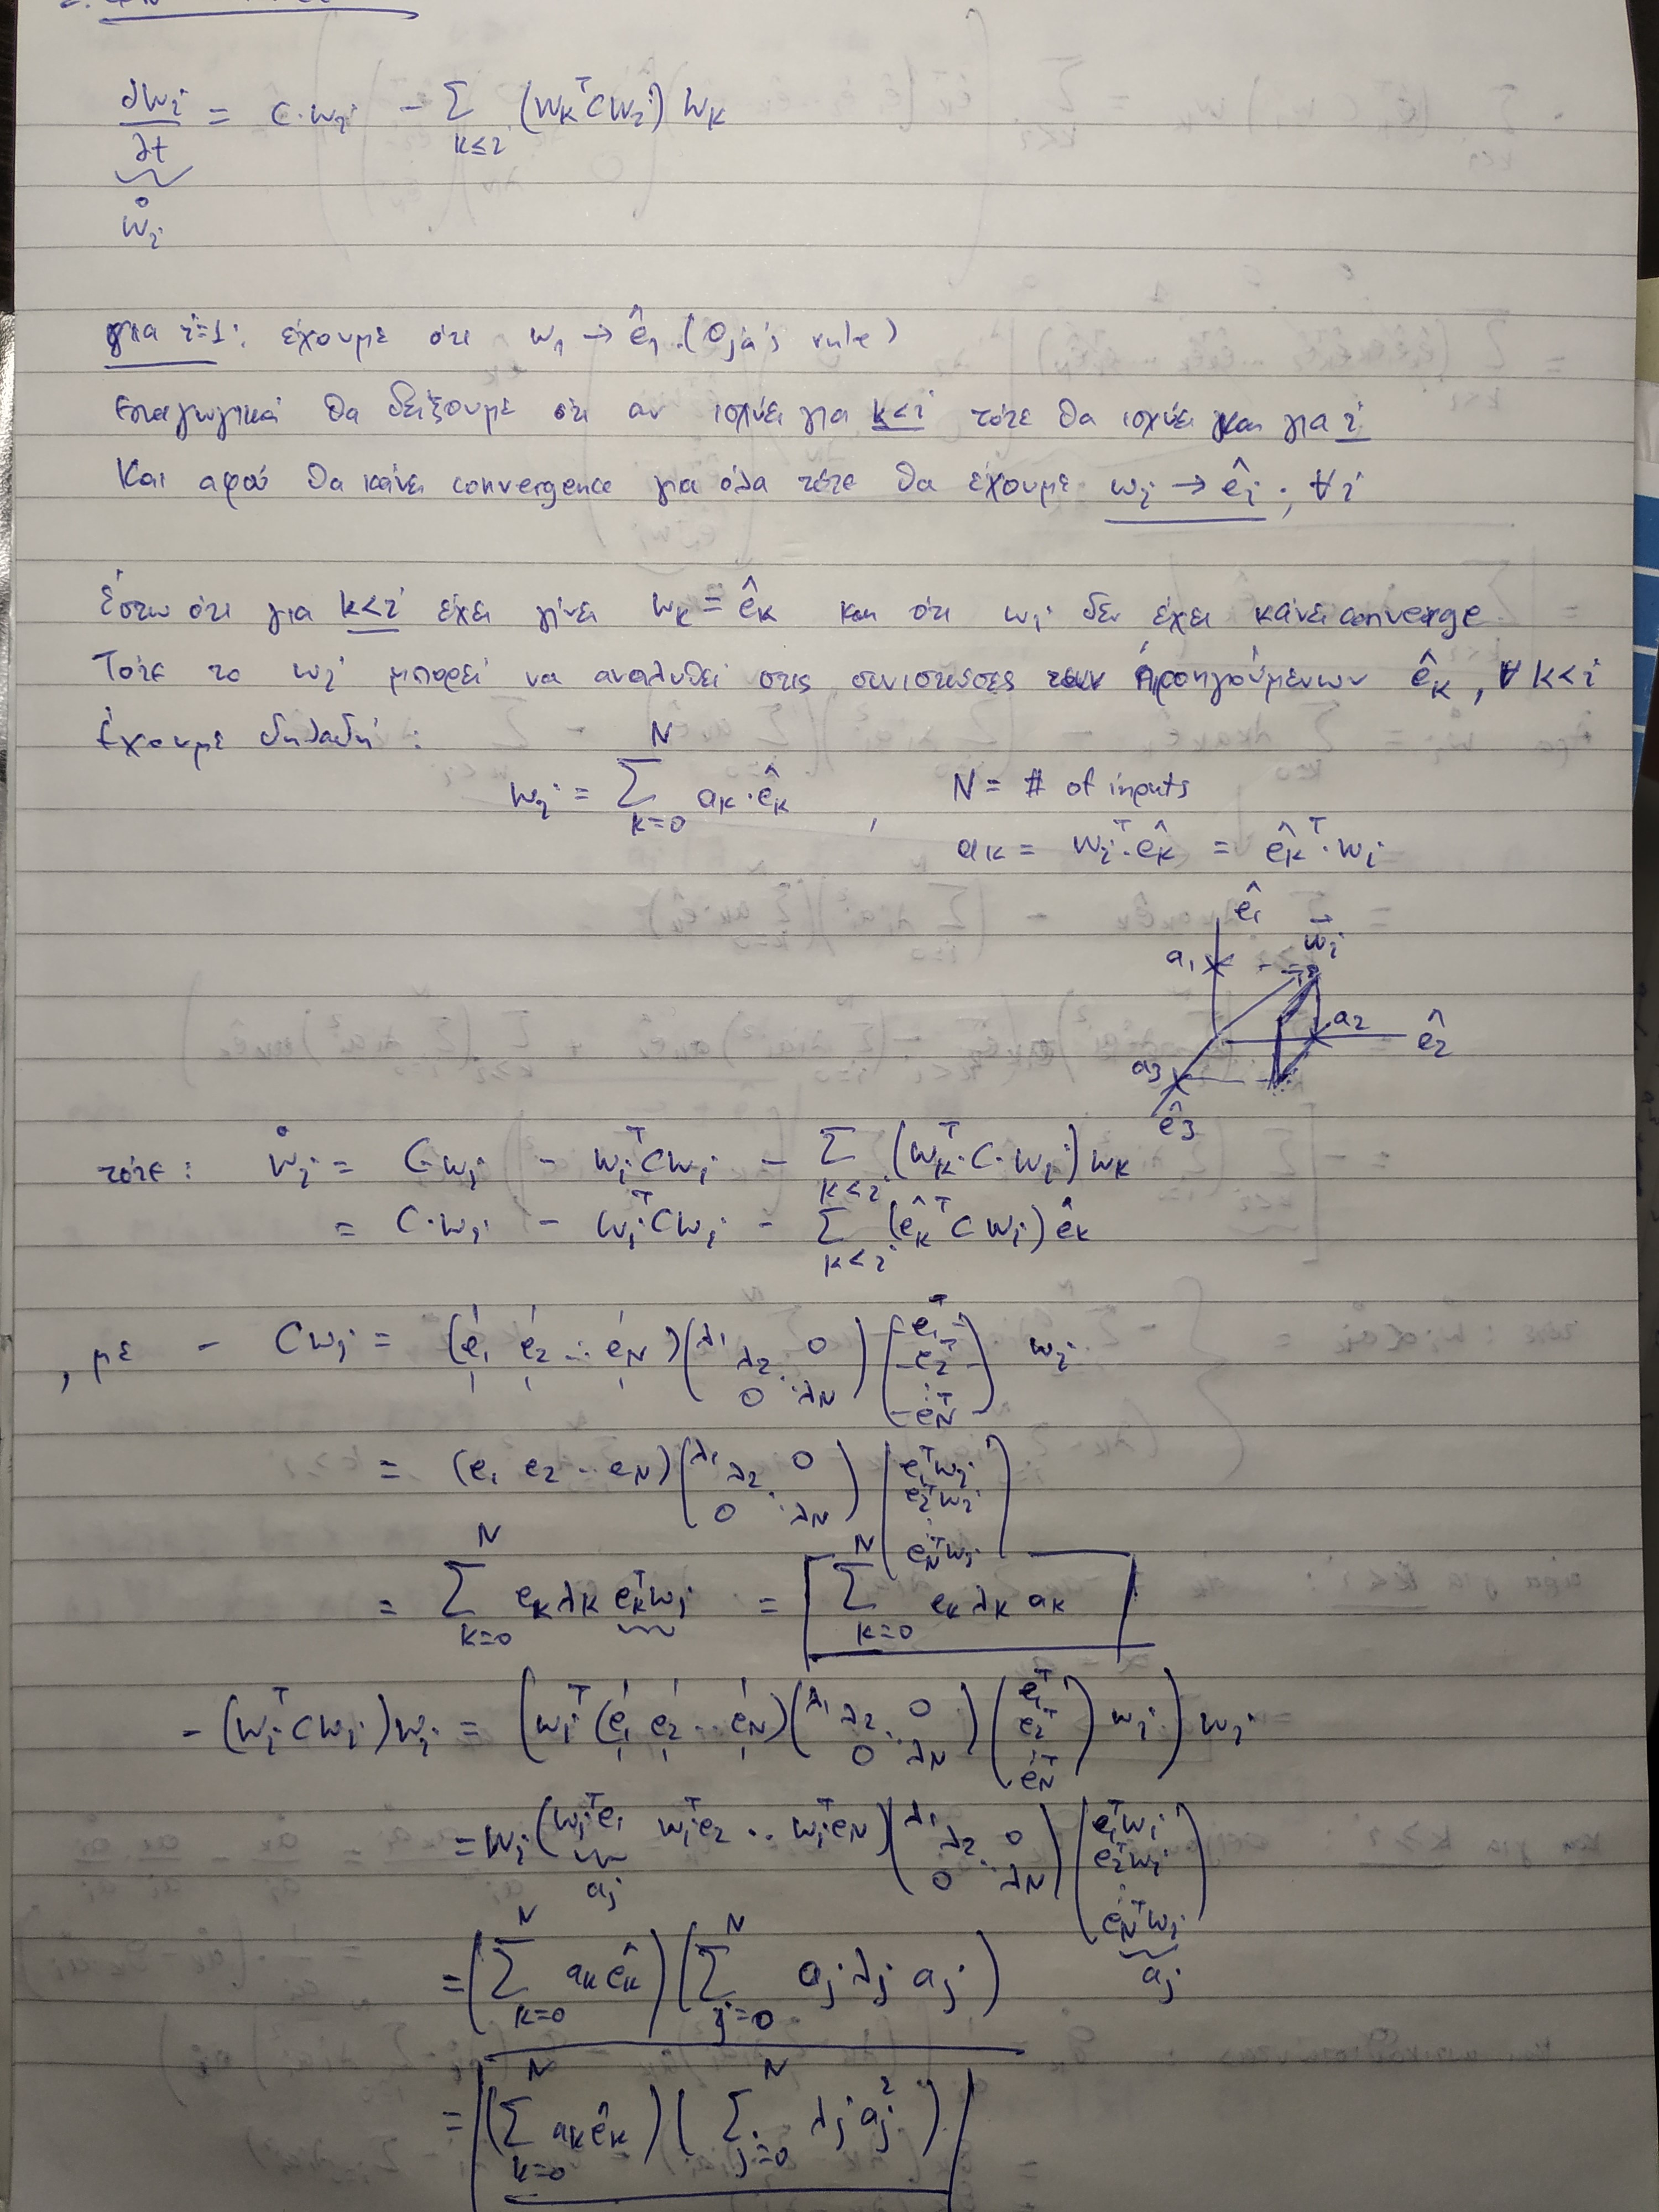 ∂wi/∂t = C·wi − Σ_{k≤i} (wk^T C wi) wk
ẘi
για i=1: έχουμε ότι w1 → ê1 (Oja's rule)
Επαγωγικά θα δείξουμε ότι αν ισχύει για k<i τότε θα ισχύει και για i
Και αφού θα κάνει convergence για όλα τότε θα έχουμε wi → êi, ∀i
Έστω ότι για k<i έχει γίνει wk = êk και ότι wi δεν έχει κάνει converge
Τότε το wi μπορεί να αναλυθεί στις συνιστώσες των προηγούμενων êk, ∀ k<i
Έχουμε δηλαδή:
wi = Σ_{k=0}^{N} ak·êk , N = # of inputs
ak = wi^T·êk = êk^T·wi
ê1
wi
a1
a2
ê2
a3
ê3
τότε: ẘi = C·wi − wi^T C wi − Σ_{k<i} (wk^T·C·wi) wk
= C·wi − wi^T C wi − Σ_{k<i} (êk^T C wi) êk
, με − Cwi = (e1 e2 ... eN) (λ1 λ2 0 0 ⋱ λN) (e1^T e2^T ⋮ eN^T) wi
= (e1 e2 ... eN) (λ1 λ2 0 0 ⋱ λN) (e1^T wi e2^T wi ⋮ eN^T wi)
= Σ_{k=0}^{N} ek λk ek^T wi = Σ_{k=0}^{N} ek λk ak
− (wi^T C wi) wi = (wi^T (e1 e2 ... eN) (λ1 λ2 0 0 ⋱ λN) (e1^T e2^T ⋮ eN^T) wi) wi
= wi (wi^T e1 wi^T e2 .. wi^T eN) (λ1 λ2 0 0 ⋱ λN) (e1^T wi e2^T wi ⋮ eN^T wi)
aj
aj
= (Σ_{k=0}^{N} ak êk) (Σ_{j=0}^{N} aj λj aj)
= (Σ_{k=0}^{N} ak êk) (Σ_{j=0}^{N} λj aj^2)